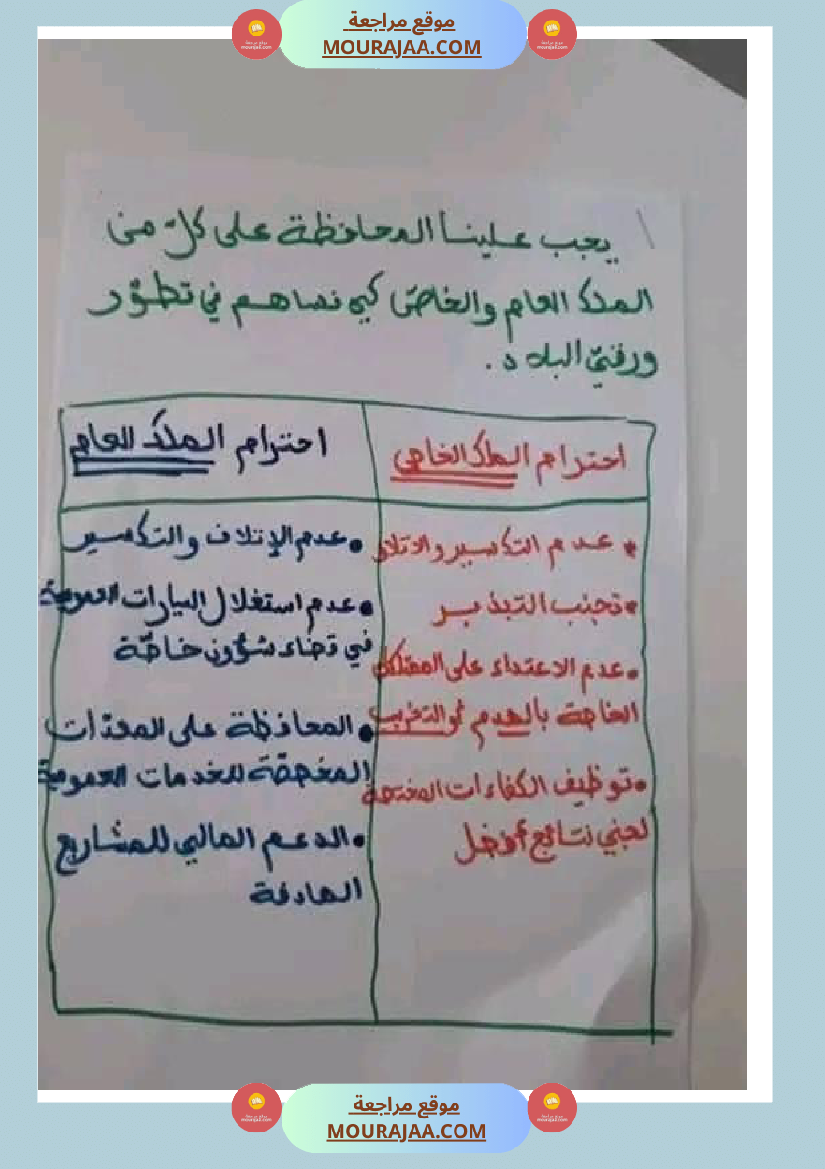 موقع مراجعة
MOURAJAA.COM
يجب علينا المحافظة على كلّ من
الملك العام والخاصّ كي نساهم في تطوّر
ورقيّ البلاد .
احترام الملك الخاص
• عدم التكسير والاتلاف
• تجنب التبذير
• عدم الاعتداء على الممتلكات
الخاصة بالهدم أو التخريب
• توظيف الكفاءات المختصة
لجني نتائج أفضل
احترام الملك العام
• عدم الإتلاف والتكسير
• عدم استغلال السيارات العمومية
في قضاء شؤون خاصّة
• المحافظة على المعدّات
المخصّصة للخدمات العمومية
• الدعم المالي للمشاريع
الهادفة
موقع مراجعة
MOURAJAA.COM